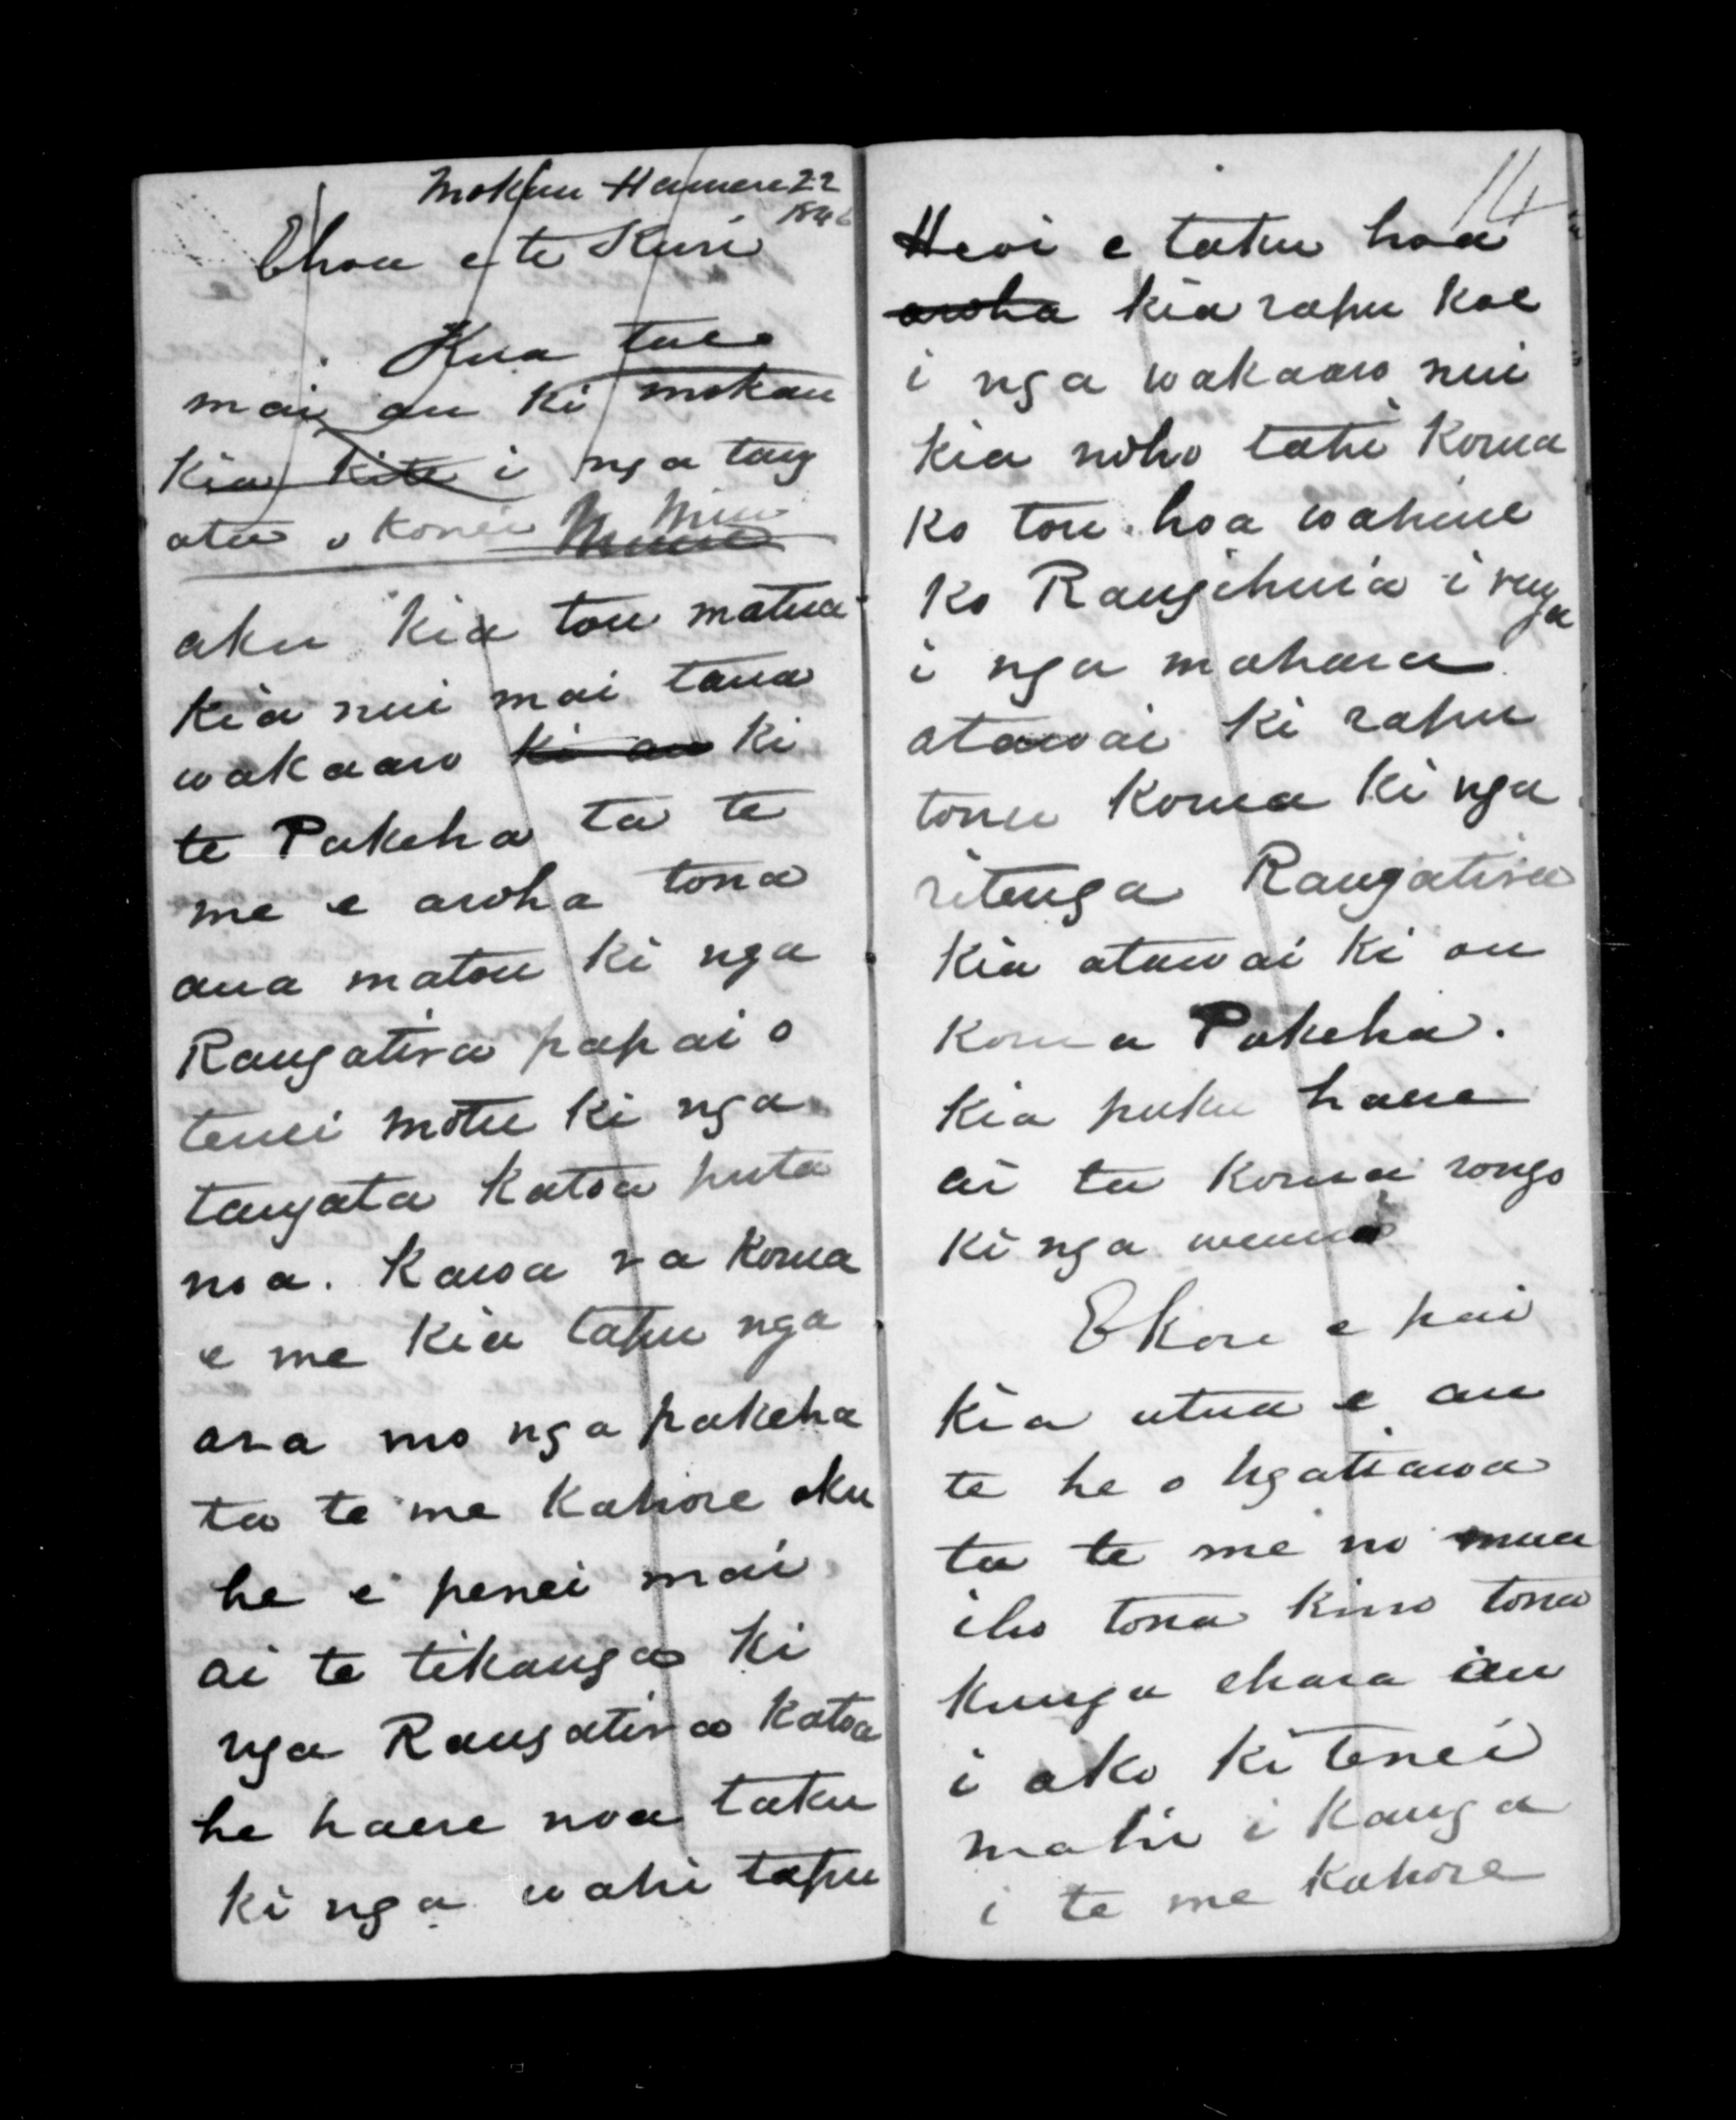 Mokau Hanuere 22
184
Ehoa e te Kuri
Kua tae
mai au ki mokau
kia kite i nga tang
ata o konei
aku kia tou matua
kia nui mai tana
wakaaro ki au ki
te Pakeha ta te
me e aroha tona
ana matou ki nga
Rangatira papai o
tenei motu ki nga
tangata katoa puta
noa. Kawa ra korua
e me kia tapu nga
ara mo nga pakeha
ta te me kahore oku
he e penei mai
ai te tikanga ki
nga Rangatira katoa
he haere noa taku
ki nga wahi tapu
14
Heoi e taku hoa
aroha kia rapu koe
i nga wakaaro nui
kia noho tahi korua
ko tou hoa wahine
ko Rangihuia i runga
i nga mahara
atawai ki rapu
tonu korua ki nga
ritenga Rangatira
kia atawai ki ou
korua Pakeha.
kia puku haere
ai ta korua rongo
ki nga
Ekore e pai
kia utua e au
te he o Ngatiawa
ta te me no mua
iho tona kino tona
kunga ehara iau
i ako ki tenei
mahi i kanga
i te me kahore